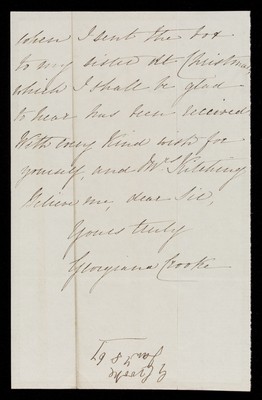 when I sent the box
to my sister at Christmas,
which I shall be glad
to hear has been received
With every kind wish for
yourself, and Mrs Kitching
Believe me, dear Sir,
Yours truly
Georgiana Crooke
G Crooke
Jan 8 67